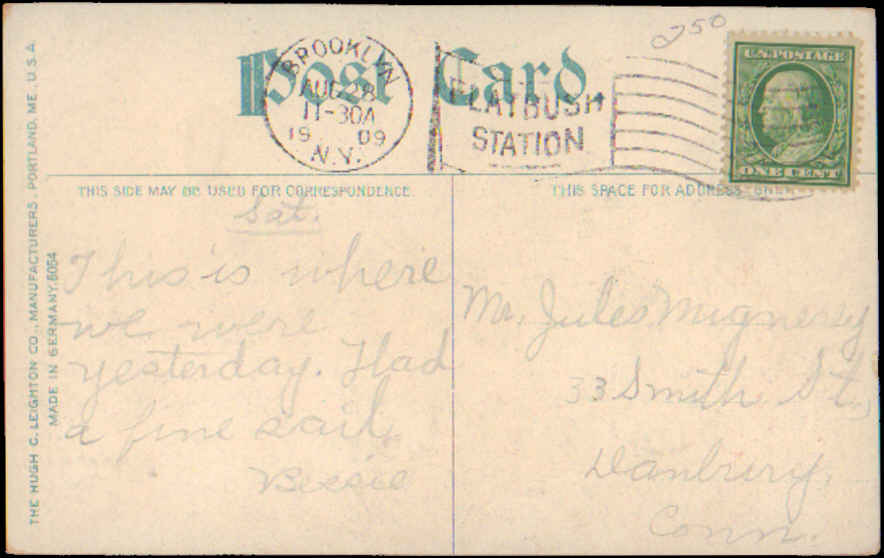 250
Post Card
BROOKLYN
AUG 28
11-30A
1909
N.Y.
FLATBUSH
STATION
U.S. POSTAGE
ONE CENT
THIS SIDE MAY BE USED FOR CORRESPONDENCE.
THIS SPACE FOR ADDRESS ONLY
THE HUGH C. LEIGHTON CO., MANUFACTURERS, PORTLAND, ME., U.S.A.
MADE IN GERMANY.
Sat.
This is where
we were
yesterday. Had
a fine sail,
Bessie
Mr. Jules Mignerey
33 Smith St.,
Danbury,
Conn.